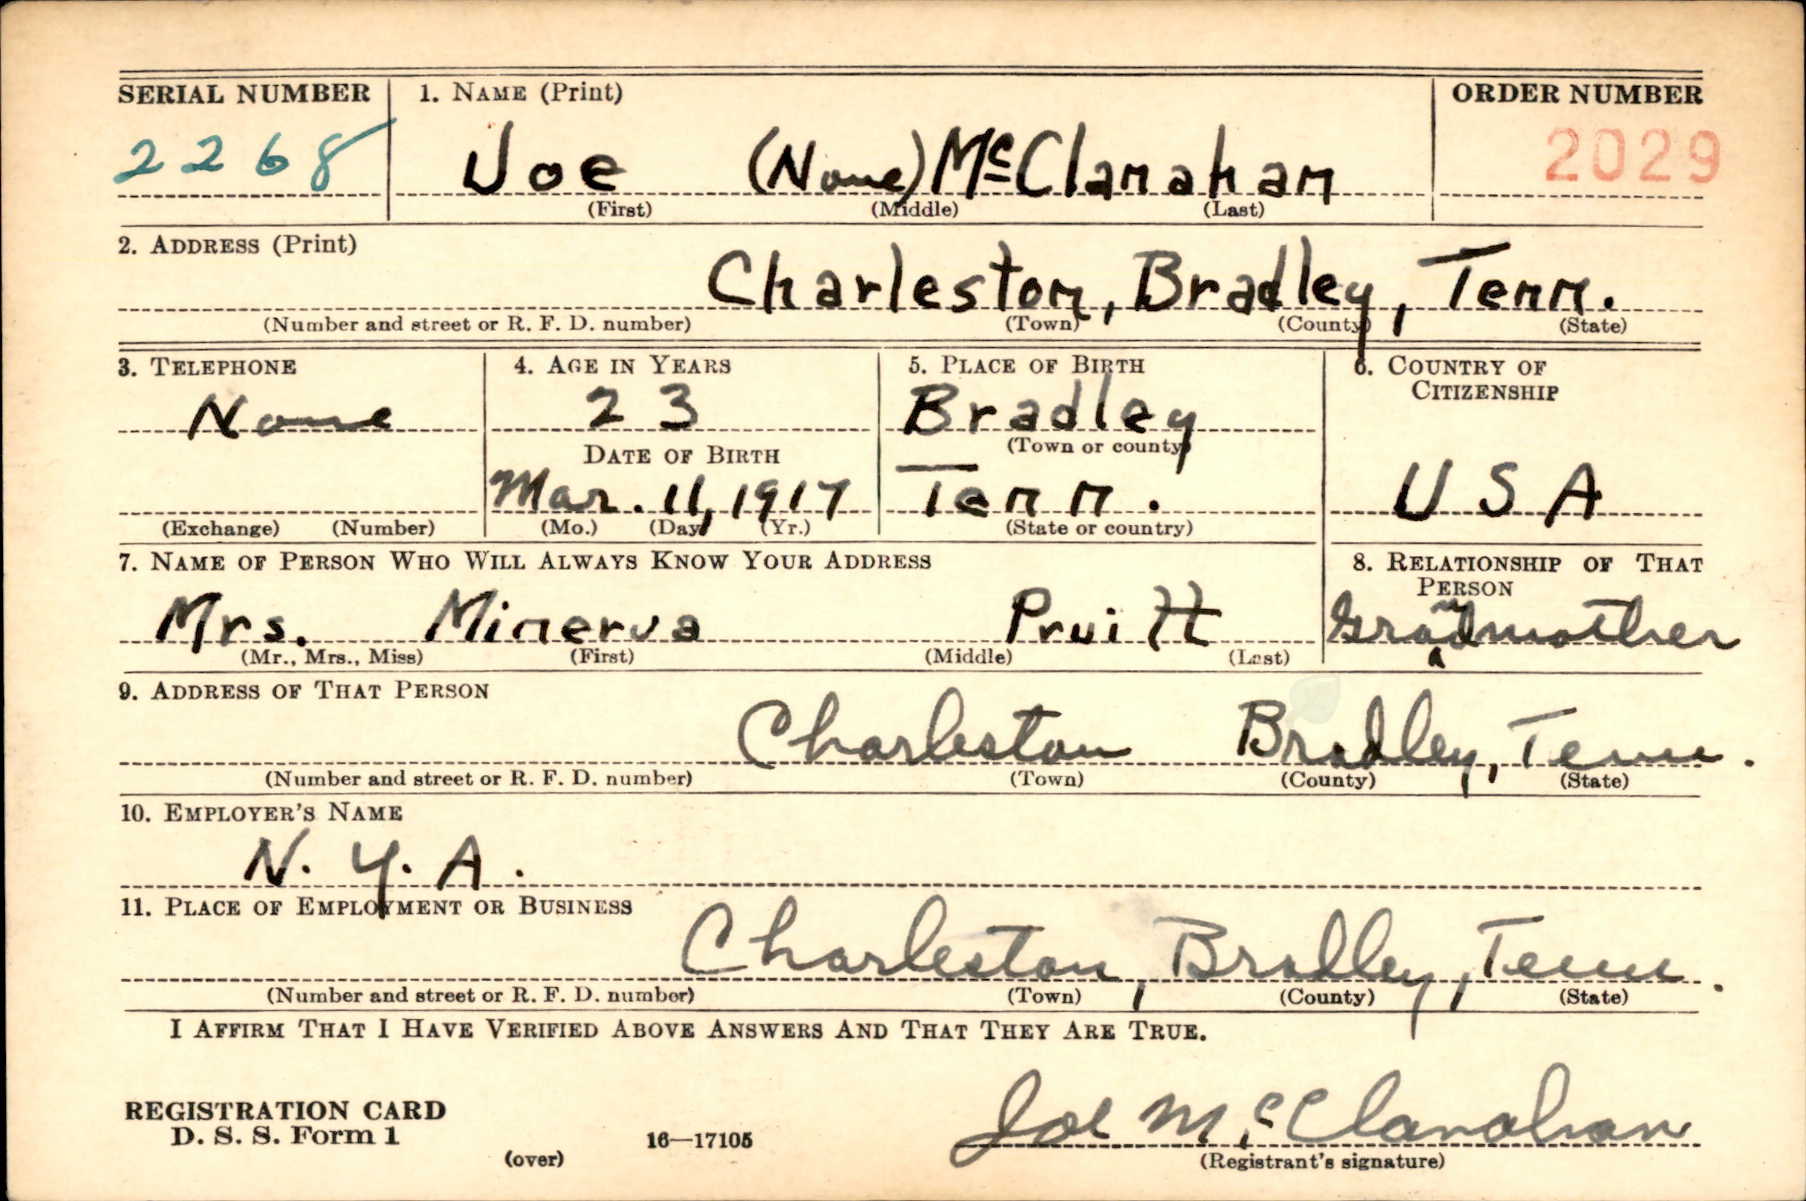 SERIAL NUMBER 1. NAME (Print) ORDER NUMBER
2268 Joe (None) McClanahan 2029
(First) (Middle) (Last)
2. ADDRESS (Print)
Charleston, Bradley, Tenn.
(Number and street or R. F. D. number) (Town) (County) (State)
3. TELEPHONE 4. AGE IN YEARS 5. PLACE OF BIRTH 6. COUNTRY OF
CITIZENSHIP
None 23 Bradley
DATE OF BIRTH (Town or county)
Mar. 11, 1917 Tenn. USA
(Exchange) (Number) (Mo.) (Day) (Yr.) (State or country)
7. NAME OF PERSON WHO WILL ALWAYS KNOW YOUR ADDRESS 8. RELATIONSHIP OF THAT
PERSON
Mrs. Minerva Pruitt Grandmother
(Mr., Mrs., Miss) (First) (Middle) (Last)
9. ADDRESS OF THAT PERSON
Charleston Bradley, Tenn.
(Number and street or R. F. D. number) (Town) (County) (State)
10. EMPLOYER'S NAME
N. Y. A.
11. PLACE OF EMPLOYMENT OR BUSINESS
Charleston, Bradley, Tenn.
(Number and street or R. F. D. number) (Town) (County) (State)
I AFFIRM THAT I HAVE VERIFIED ABOVE ANSWERS AND THAT THEY ARE TRUE.
REGISTRATION CARD
D. S. S. Form 1 (over) 16—17105 Joe McClanahan
(Registrant's signature)